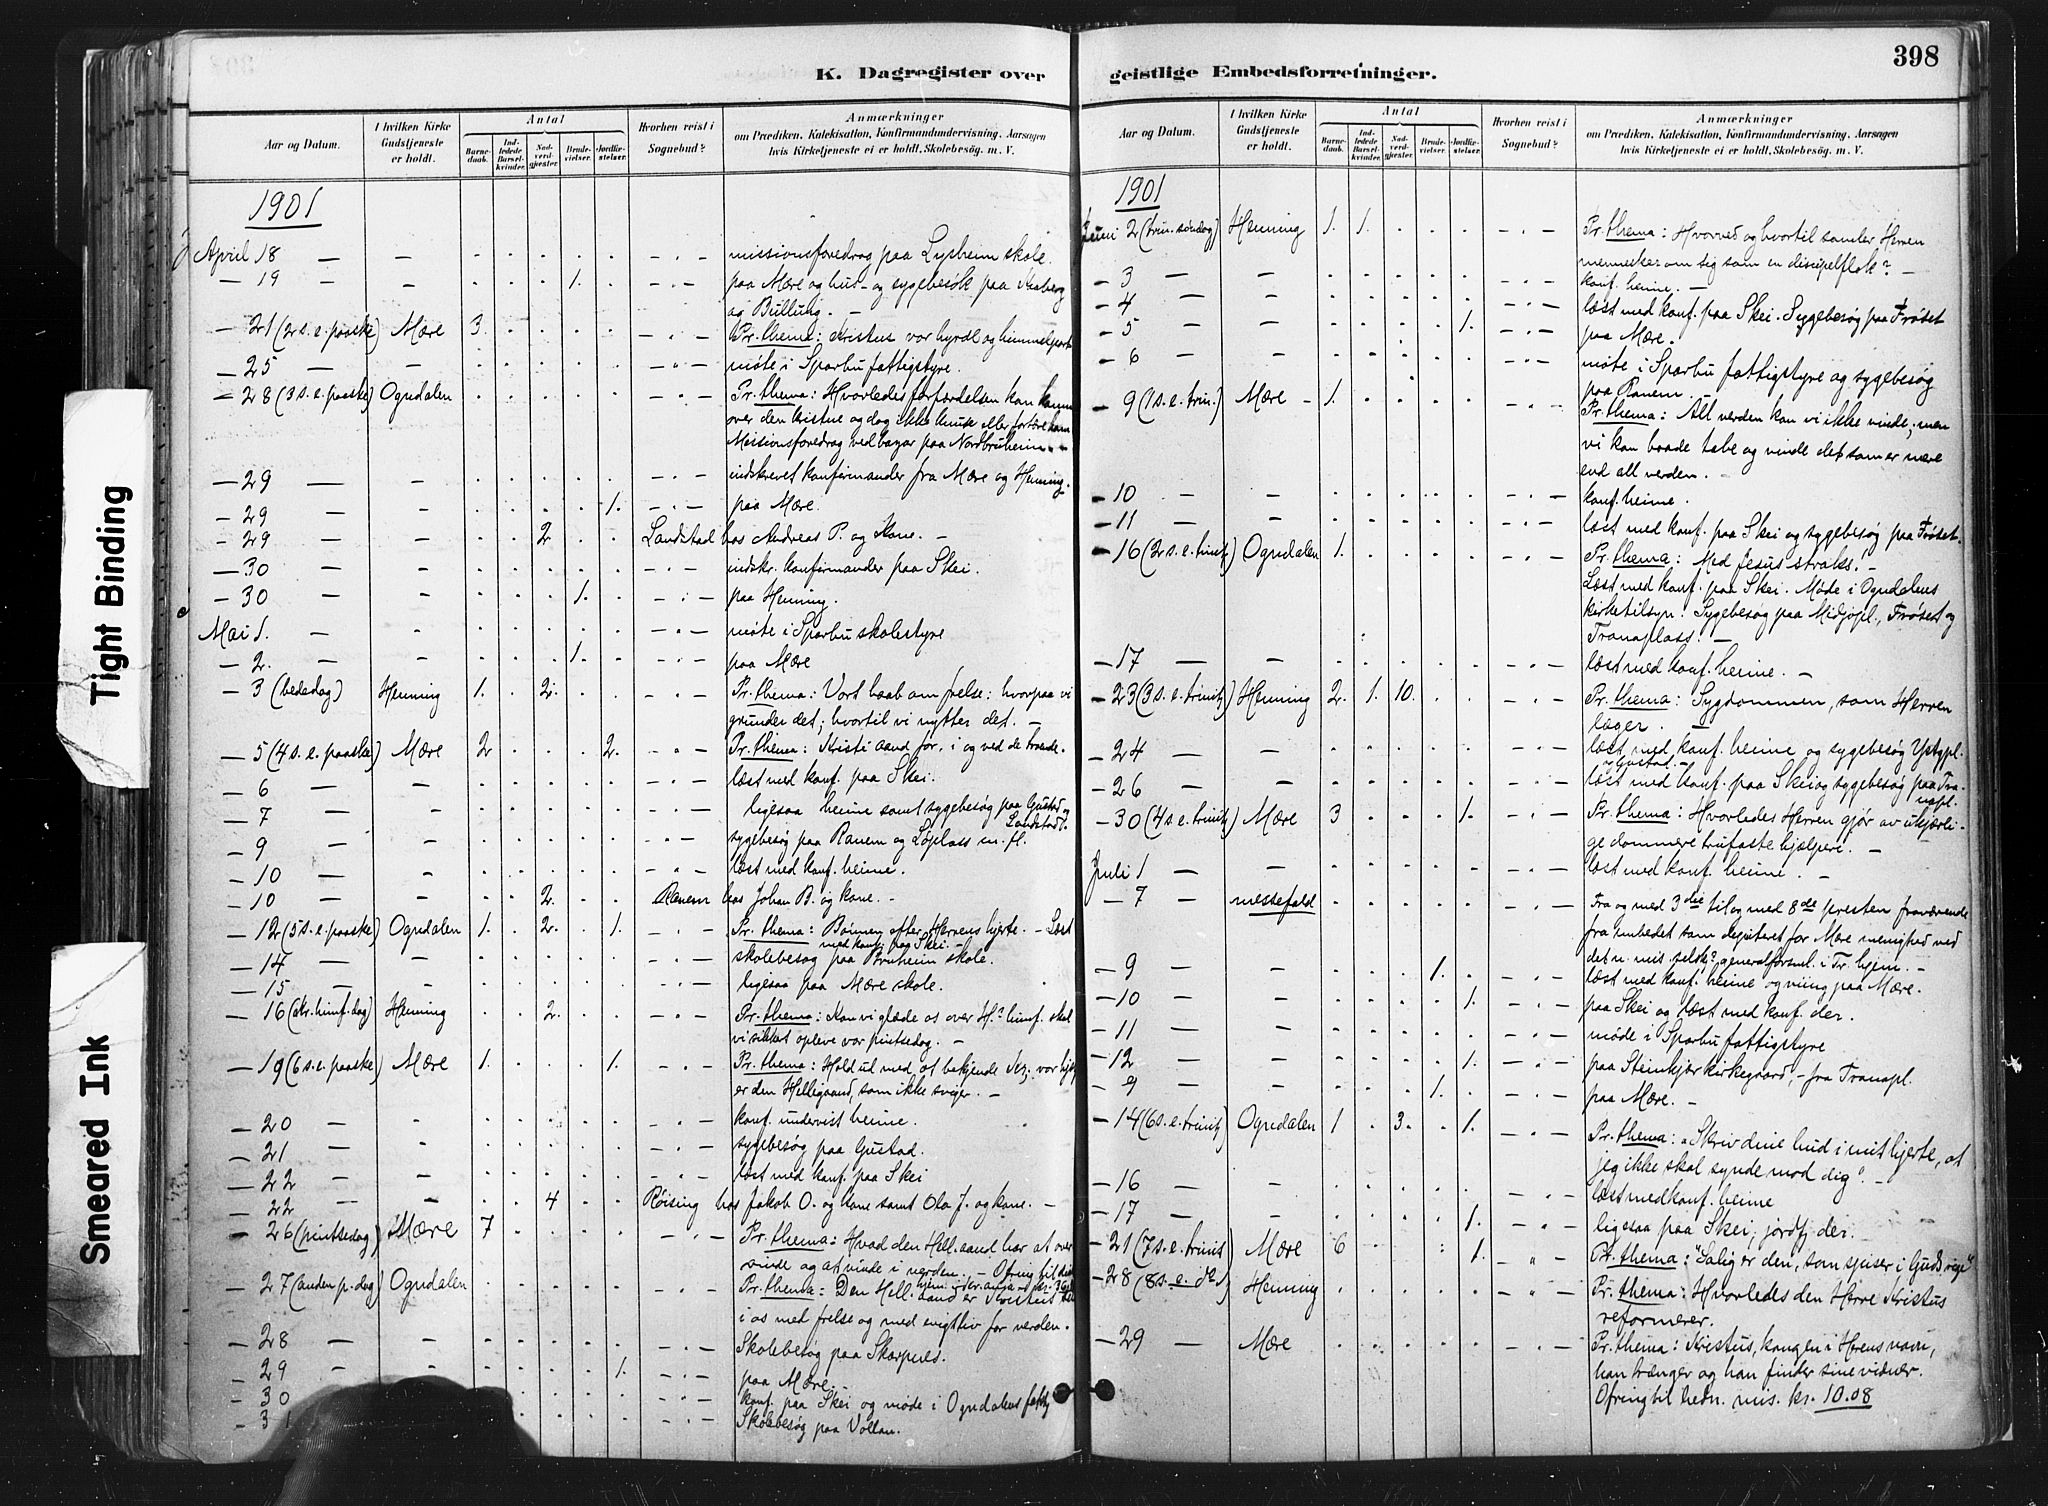 398
K. Dagregister over geistlige Embedsforretninger.
Aar og Datum. I hvilken Kirke Gudstjeneste er holdt. Antal Barnedaab. Indledede Barselkvinder. Nadverdgjester. Brudevielser. Jordfæstelser. Hvorhen reist i Sognebud? Anmærkninger om Prædiken, Katekisation, Konfirmandundervisning, Aarsagen hvis Kirketjeneste ei er holdt, Skolebesög. m. V.
1901
April 18 — — missionsforedrag paa Lysheim skole.
— 19 — — 1. paa Mære og hus- og sygebesøk paa
og Bullung. —
— 21 (2 s. e. paaske) Mære 3. Pr. thema: Kristus vor hyrde og
— 25 — — møte i Sparbu fattigstyre.
— 28 (3 s. e. paaske) Ogndalen Pr. thema: Hvorledes forfærdelsen kan komme
over den kristne og dog ikke knuse eller
Missionsforedrag ved bazar paa Nordbruheim. —
— 29 — — indskrevet konfirmander fra Mære og Henning.
— 29 — — 1. paa Mære.
— 29 — — 2. Landstad hos Andreas P. og kone. —
— 30 — — indskr. konfirmander paa Skei.
— 30 — — 1. paa Henning.
Mai 1. — — møte i Sparbu skolestyre
— 2. — — 1. paa Mære
— 3 (bededag) Henning 1. 2. Pr. thema: Vort haab om frelse: hvorpaa vi
grunder det; hvortil vi nytter det. —
— 5 (4 s. e. paaske) Mære 2 2. Pr. thema: Kristi aand for, i og ved de troende.
— 6 — — læst med konf. paa Skei.
— 7 — — ligesaa heime samt sygebesøg paa Gustad og
Landstad.
— 9 — — sygebesøg paa Ranem og Løplass m. fl.
— 10 — — læst med konf. heime.
— 10 — — 2. Ranem hos Johan B. og kone. —
— 12 (5 s. e. paaske) Ogndalen 1. 2. 1. Pr. thema: Bønnen efter Herrens hjerte. — Læst
med konf. paa Skei. —
— 14 — — skolebesøg paa Bruheim skole.
— 15 — — ligesaa paa Mære skole.
— 16 (kr. himf. dag) Henning 2. Pr. thema: Kan vi glæde os over H.s himf. skal
vi sikkert opleve vor pintsedag. —
— 19 (6 s. e. paaske) Mære 1. 1. Pr. thema: Hold ud med at bekjende Jes; vor hjælp
er den Helligaand, som ikke sviger. —
— 20 — — konf. undervist heime.
— 21 — — sygebesøg paa Gustad.
— 22 — — læst med konf. paa Skei
— 22 — — 4 Røising hos Jakob O. og kone samt Ola J. og kone. —
— 26 (pintsedag) Mære 7 Pr. thema: Hvad den Hell. aand har at over-
vinde og at vinde i verden. — Ofring til
— 27 (anden p. dag) Ogndalen Pr. thema: Den Hell. aand er Kristus
i os med frelse og med evigt liv for verden.
— 28 — — Skolebesøg paa Skarpnes.
— 29 — 1. paa Mære.
— 30 konf. paa Skei og møde i Ogndalens
— 31 Skolebesøg paa Vollan.
Aar og Datum. I hvilken Kirke Gudstjeneste er holdt. Antal Barnedaab. Indledede Barselkvinder. Nadverdgjester. Brudevielser. Jordfæstelser. Hvorhen reist i Sognebud? Anmærkninger om Prædiken, Katekisation, Konfirmandundervisning, Aarsagen hvis Kirketjeneste ei er holdt, Skolebesög. m. V.
1901
Juni 2 (trin. søndag) Henning 1. 1. Pr. thema: Hvorved og hvortil samler Herren
mennesker om sig som en discipelflok? —
— 3 — — konf. heime. —
— 4 — — læst med konf. paa Skei. Sygebesøg paa Frøset
— 5 — — 1. paa Mære.
— 6 — — møte i Sparbu fattigstyre og sygebesøg
paa Ranem.
— 9 (1 s. e. trin.) Mære — 1. Pr. thema: Alt verden kan vi ikke vinde; men
vi kan baade tabe og vinde det som er mere
end all verden. —
— 10 — — konf. heime.
— 11 — — læst med konf. paa Skei og sygebesøg paa Frøset.
— 16 (2 s. e. trinit.) Ogndalen 1. Pr. thema: Med Jesus straks. —
Læst med konf. paa Skei. Møde i Ogndalens
kirketilsyn. Sygebesøg paa Midjopl., Frøset og
Tranaplass. —
— 17 — — læst med konf. heime. —
— 23 (3 s. e. trinit.) Henning 2. 1. 10. Pr. thema: Sygdommen, som Herren
læger. —
— 24 — — læst med konf. heime og sygebesøg Ystgpl.
Gustad. —
— 26 — — læst med konf. paa Skei og sygebesøg paa Tra-
napl.
— 30 (4 s. e. trinit.) Mære 3 1. Pr. thema: Hvorledes Herren gjør av ukjærli-
ge dommere trufaste hjælpere. —
Juli 1 — — læst med konf. heime. —
— 7 — messefald Fra og med 3die til og med 8de presten fraværende
fra embedet som deputeret for Mære menighed ved
det n. mis. selsk.s generalforsml. i Tr. hjem. —
— 9 — — 1. læst med konf. heime og viing paa Mære.
— 10 — — 1. paa Skei og læst med konf. der.
— 11 — — møde i Sparbu fattigstyre
— 12 — — 1. paa Steinkjær kirkegaard, — fra Tranapl.
— 9 — — 1. paa Mære. —
— 14 (6 s. e. trinit.) Ogndalen 1 3. 1. Pr. thema: "Skriv dine bud i mit hjerte, at
jeg ikke skal synde mod dig". —
— 16 — — læst med konf. heime
— 17 — — 1. ligesaa paa Skei; jordf. der.
— 21 (7 s. e. trinit.) Mære 6 1. Pr. thema: "Salig er den, som spiser i Guds rige"
— 28 (8 s. e. do) Henning Pr. thema: Hvorledes den Herre Kristus
reformerer.
— 29 — Mære Pr. thema: Kristus, kongen i Herens navn,
han trænger og han finder sine vidner.
Ofring til hedn. mis. kr. 10.08
Tight Binding
Smeared Ink